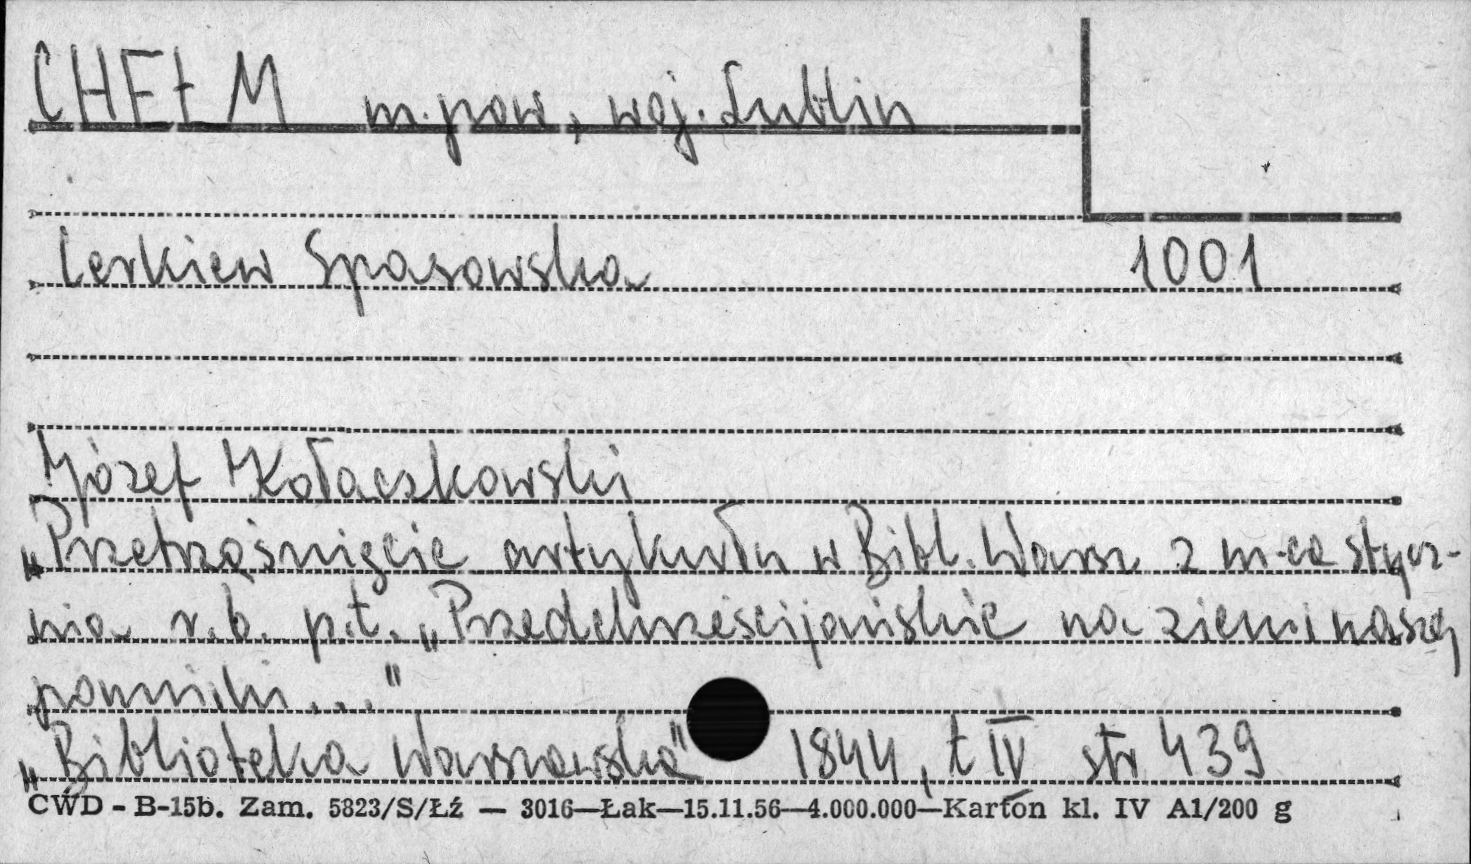 CHEŁM m.pow, woj. Lublin
Cerkiew Spasowska 1001
Józef Kołaczkowski
„Przetrząśnięcie artykułu w Bibl. Warsz z m-ca stycz-
nia r.b. p.t. „Przedchrześcijańskie na ziemi naszej
pomniki..."
„Biblioteka Warszawska" 1844, t IV str 439
CWD - B-15b. Zam. 5823/S/Łź — 3016—Łak—15.11.56—4.000.000—Karton kl. IV A1/200 g